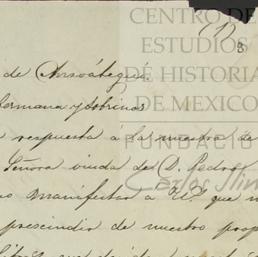 CENTRO DE
ESTUDIOS
DE HISTORIA
DE MEXICO
FUNDACIÓN
Carlos Slim
(1)
3
de Anzoátegui
hermana y sobrinos
respuesta á la nuestra de
Señora viuda de D. Pedro
manifestar á U. que
prescindir de nuestro prop